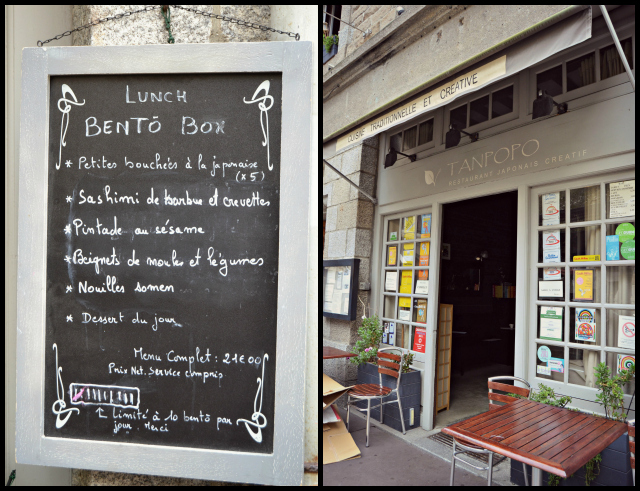 LUNCH
BENTŌ BOX
* Petites bouchées à la japonaise
(x5)
* Sashimi de barbue et crevettes
* Pintade au sésame
* Beignets de moules et légumes
* Nouilles somen
* Dessert du jour
Menu Complet : 21€00
Prix Net. Service compris
↑ Limité à 10 bentō par
jour. Merci
CUISINE TRADITIONNELLE ET CRÉATIVE
TANPOPO
RESTAURANT JAPONAIS CREATIF